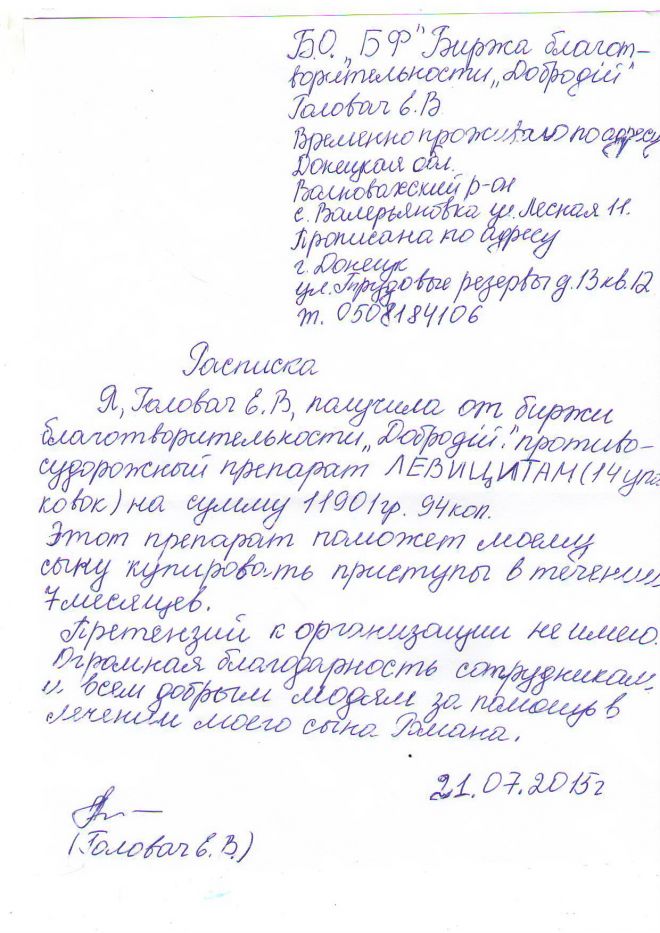 Б.О. „БФ" Биржа благот-
ворительности „Добродій"
Головач Е.В
Временно проживаю по адресу
Донецкая обл.
Волновахский р-он
с. Валерьяновка ул. Лесная 11.
Прописана по адресу
г. Донецк
ул. Трудовые резервы д.13 кв.12
т. 0508184106
Расписка
Я, Головач Е.В, получила от биржи
благотворительности „Добродій." противо-
судорожный препарат ЛЕВИЦИТАМ (14 упа
ковок) на сумму 11901гр. 94коп.
Этот препарат поможет моему
сыну купировать приступы в течении
7 месяцев.
Претензий к организации не имею.
Огромная благодарность сотрудникам,
и всем добрым людям за помощь в
лечении моего сына Романа.
21.07.2015г
(Головач Е.В.)